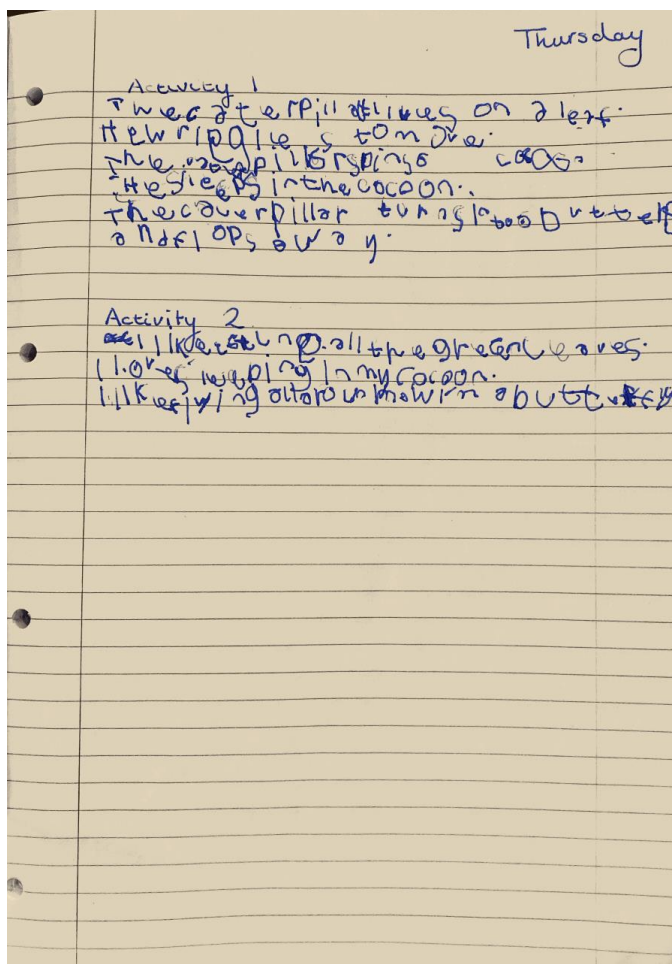 Thursday
Activity 1
The caterpillar lives on a leaf.
He wriggles to move.
The caterpillar spins a cocoon
He sleeps in the cocoon.
The caterpillar turns into a butterf
and flops away.
Activity 2
I like eating all the green leaves.
I love sleeping in my cocoon.
I like flying a butterfly